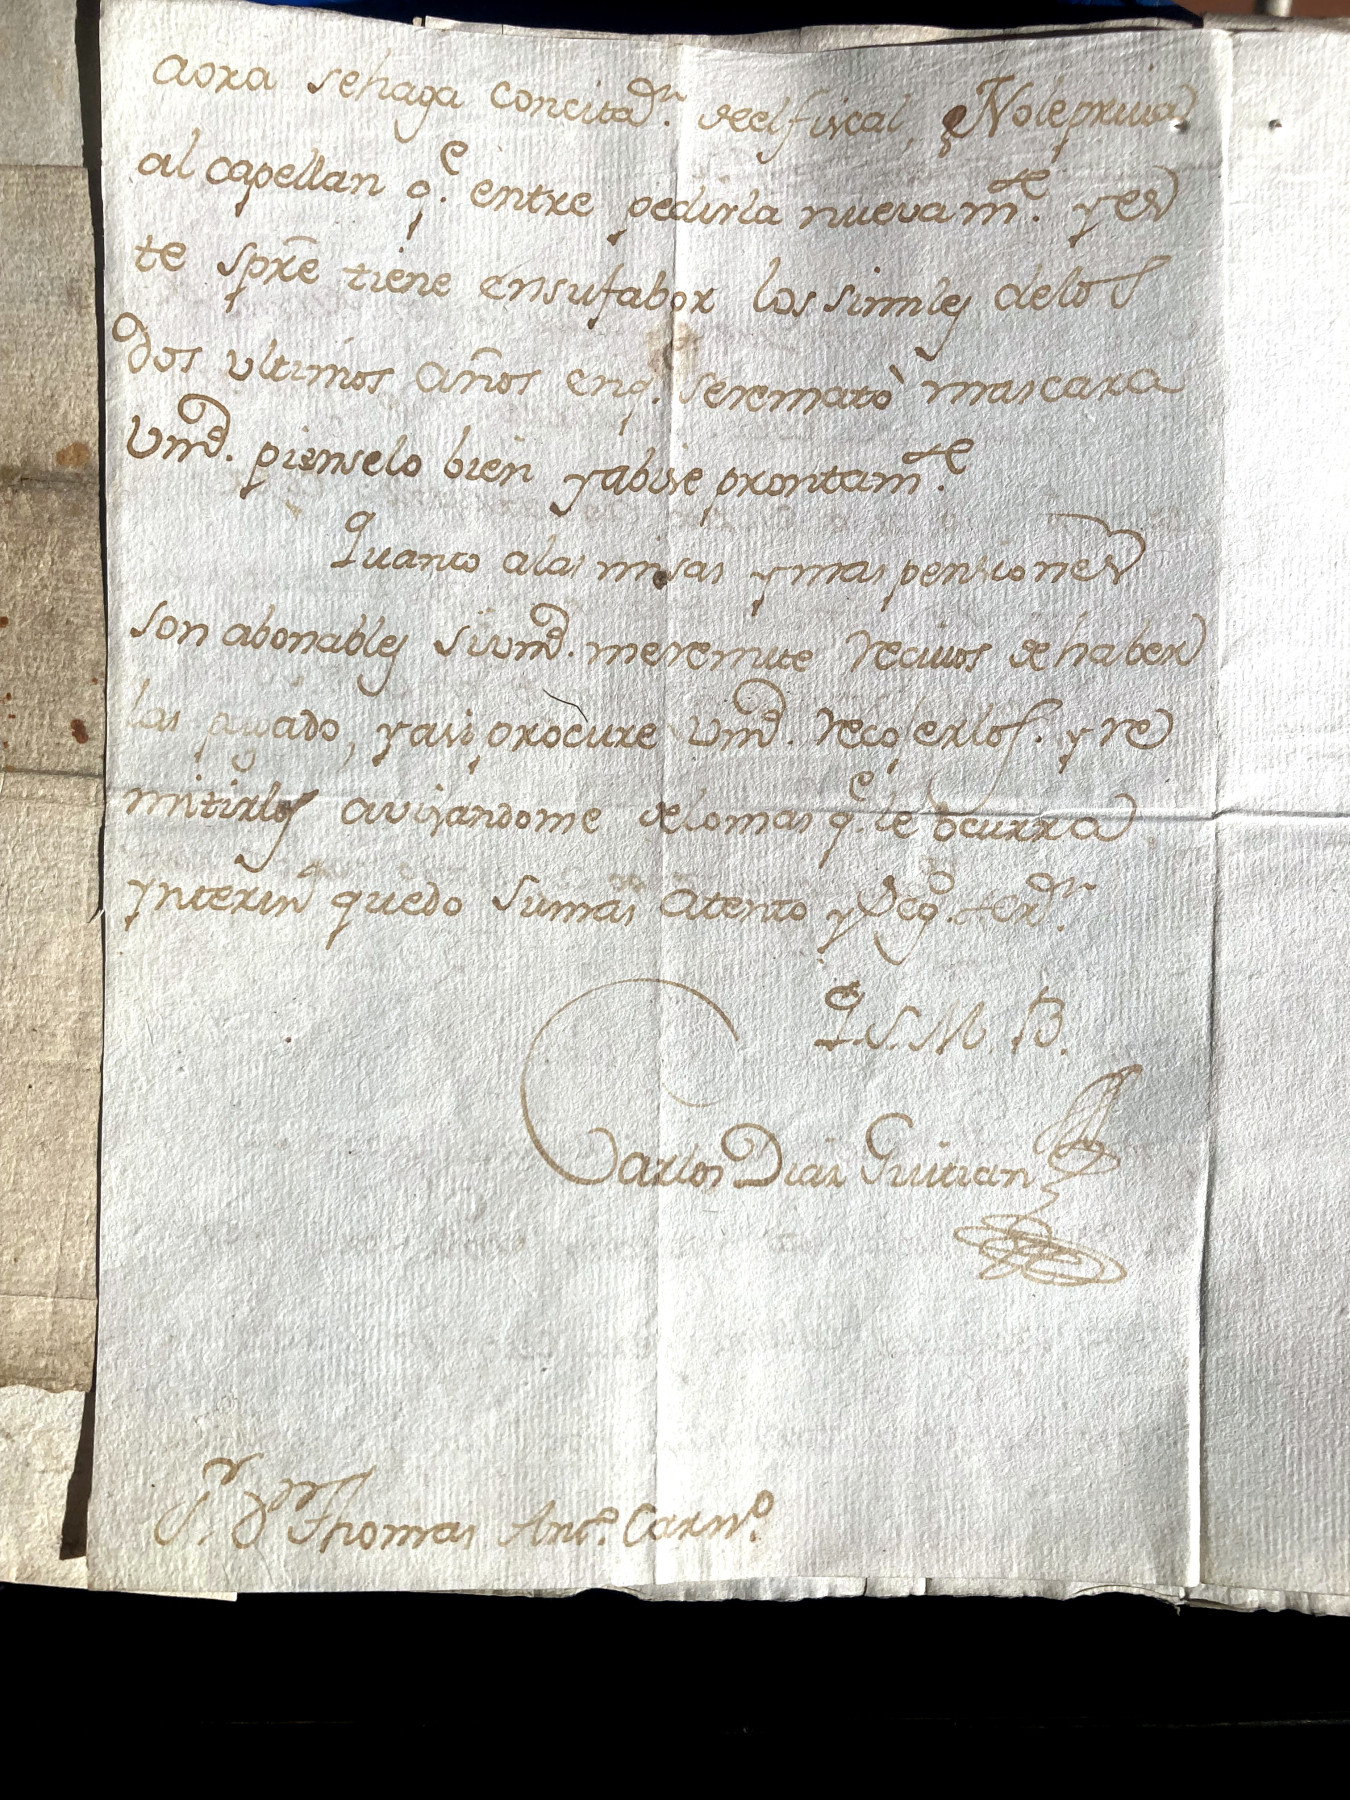 aora se haga con citaon. de el fiscal, q No le priva
al capellan q.e entre pedirla nuevam.te y es
te spre tiene en su fabor los similes de los
dos ultimos años en q. se rematò mascara
Vmd. pienselo bien y abise prontam.te
Quanto a las misas y mas pensiones
son abonables si vmd. me remite recivos de haber
las pagado, y asi procure vmd. recojerlos. y re
mitirlos avisandome de lo mas q.e le ocurra
ynterin quedo su mas atento y Seg.o ser.or
Q. S. M. B.
Carlos Diaz Guitian
S.r D.n Thomas Ant.o Carn.o